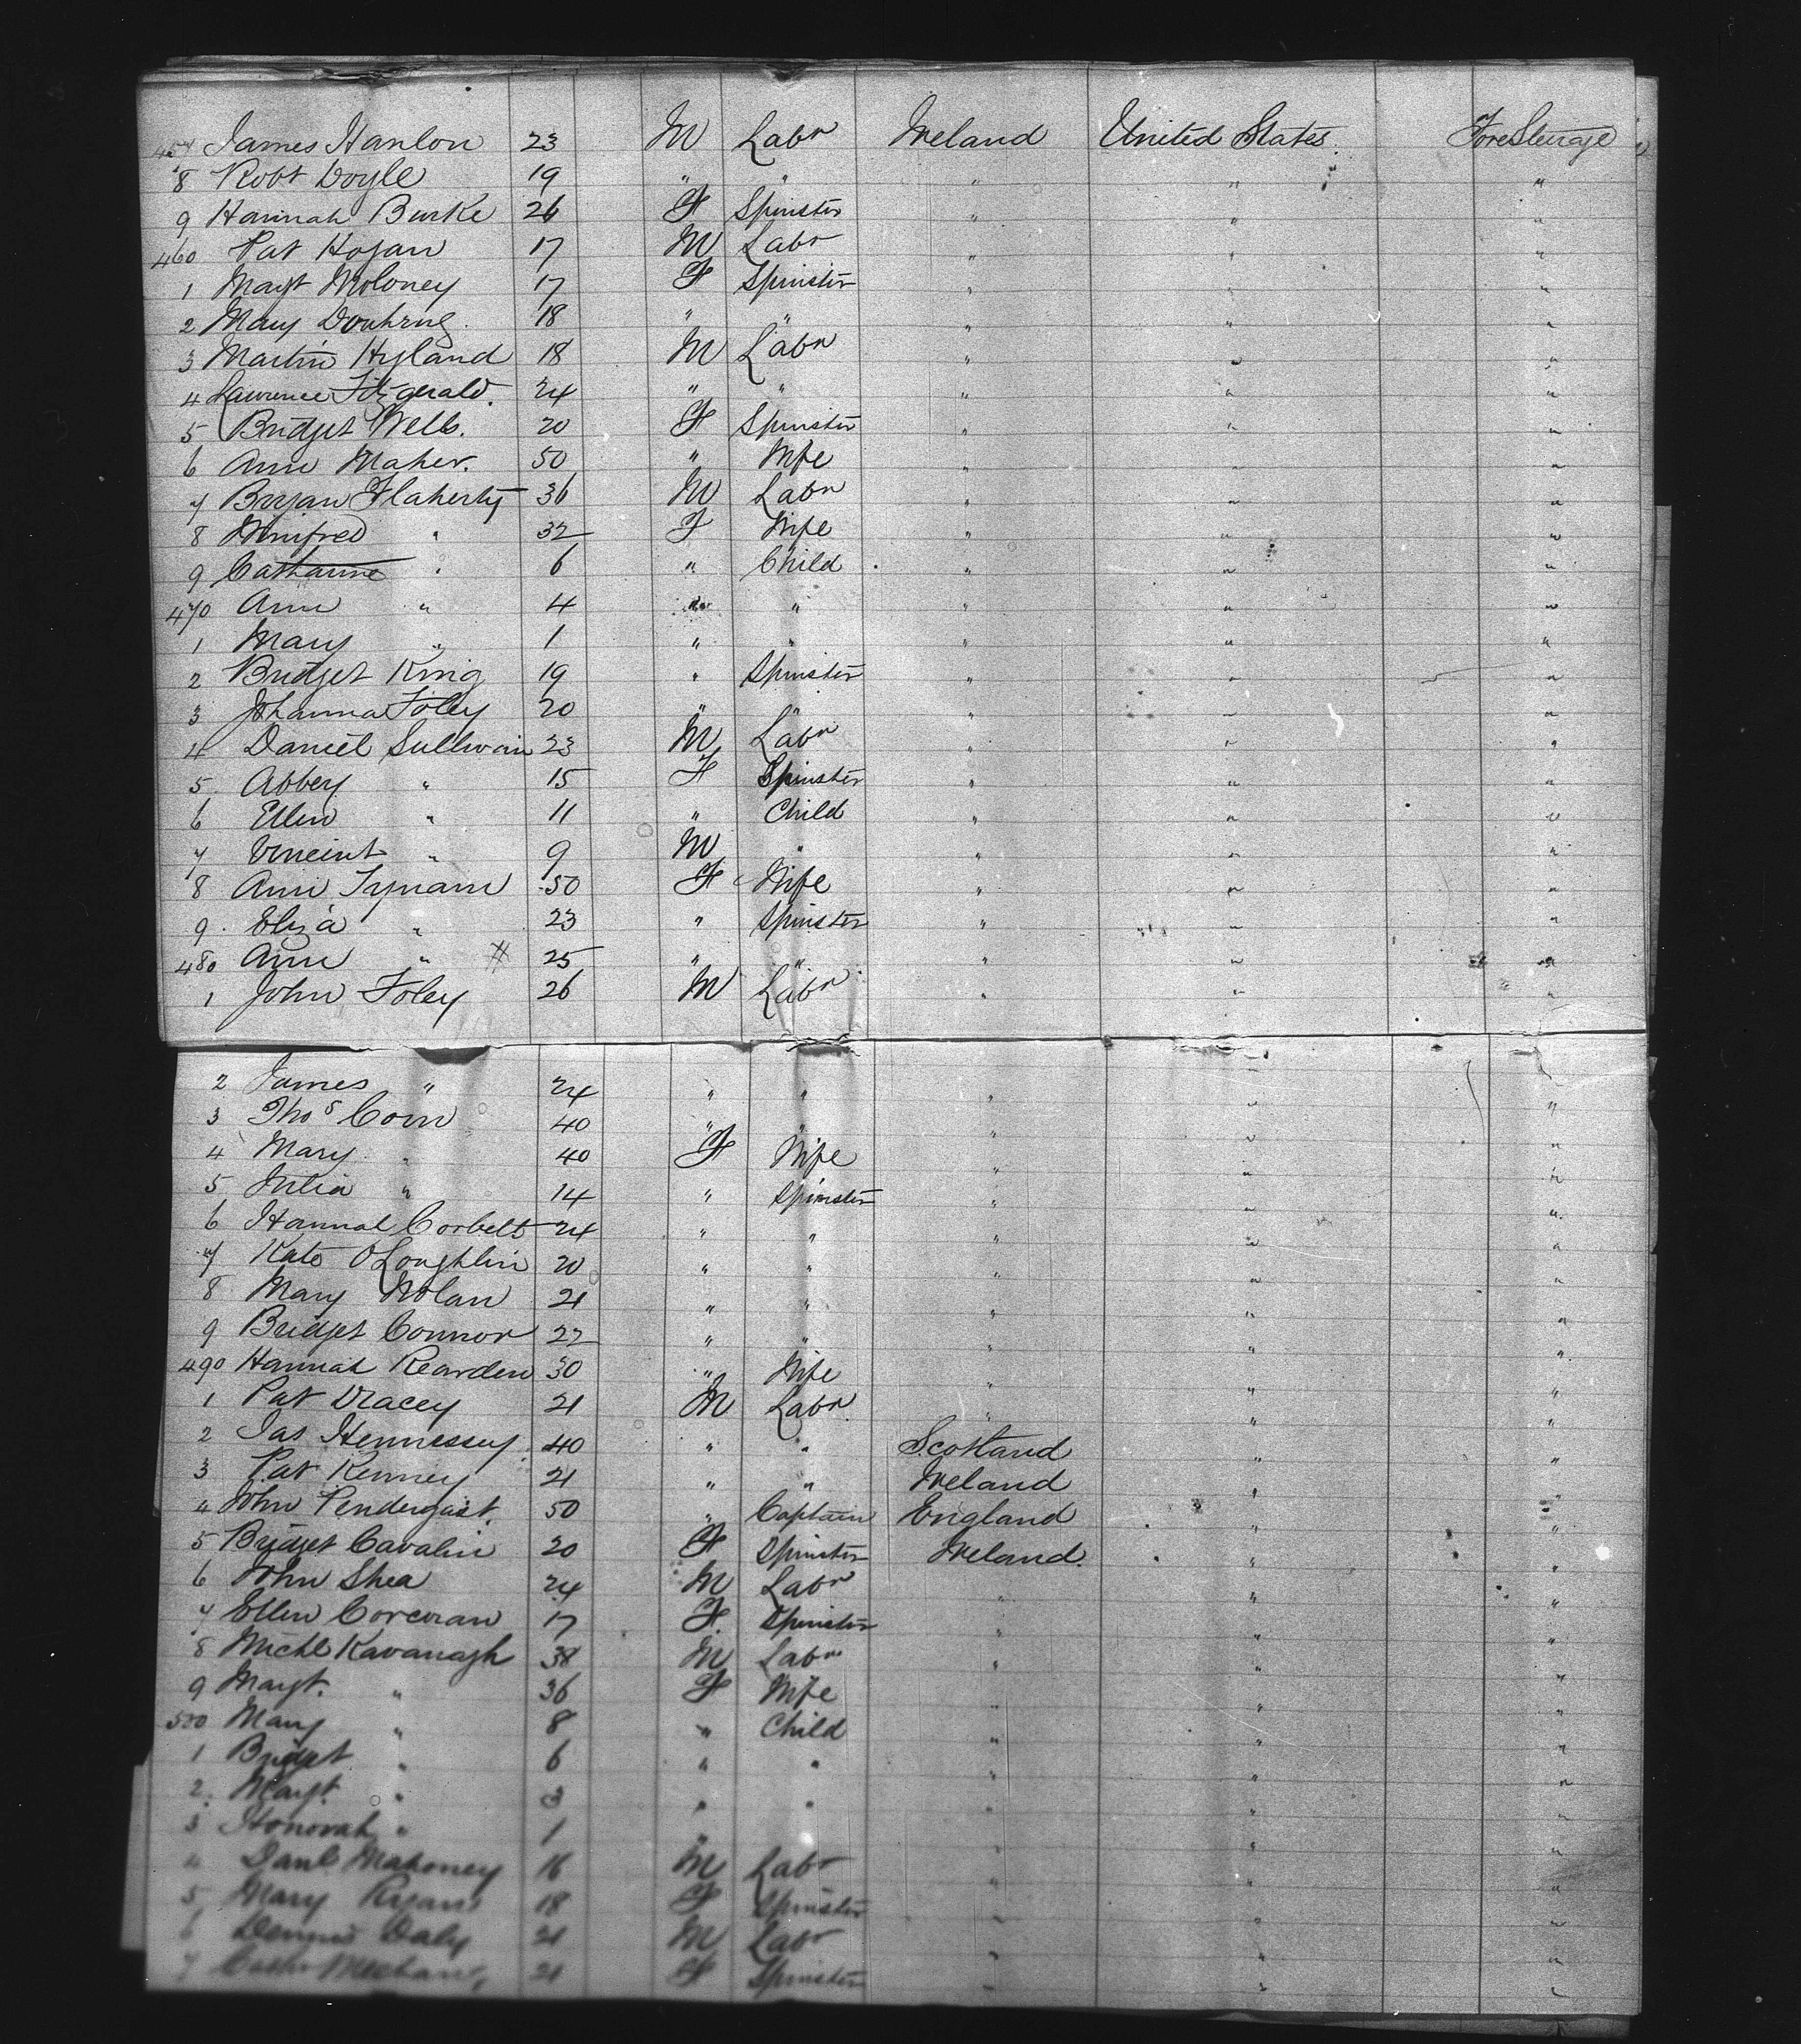 457 James Hanlon 23 M Labr Ireland United States Fore Steerage
8 Robt Doyle 19 " " " " "
9 Hannah Burke 26 F Spinster " " "
460 Pat Hogan 17 M Labr " " "
1 Margt Moloney 17 F Spinster " " "
2 Mary 18 " " " " "
3 Martin Hyland 18 M Labr " " "
4 Lawrence Fitzgerald. 24 " " " " "
5 Bridget Wells. 20 F Spinster " " "
6 Ann Maher. 50 " Wife " " "
7 Bryan Flaherty 36 M Labr " " "
8 Winifred " 32 F Wife " " "
9 Catharine " 6 " Child " " "
470 Ann " 4 " " " " "
1 Mary " 1 " " " " "
2 Bridget King 19 " Spinster " " "
3 Johanna Foley 20 " " " " "
4 Daniel Sullivan 23 M Labr " " "
5 Abbey " 15 F Spinster " " "
6 Ellen " 11 " Child " " "
7 Vincent " 9 M " " " "
8 Ann Tynam 50 F Wife " " "
9 Eliza " 23 " Spinster " " "
480 Ann " # 25 " " " " "
1 John Foley 26 M Labr " " "
2 James " 24 " " " " "
3 Thos Coin 40 " " " " "
4 Mary " 40 F Wife " " "
5 Julia " 14 " Spinster " " "
6 Hannah Corbett 24 " " " " "
7 Kate O'Loughlin 20 " " " " "
8 Mary Nolan 21 " " " " "
9 Bridget Connor 22 " " " " "
490 Hannah Rearden 30 " Wife " " "
1 Pat Dracey 21 M Labr " " "
2 Jas Hennessey 40 " " Scotland " "
3 Pat Kenney 21 " " Ireland " "
4 John Pendergast. 50 " Captain England " "
5 Bridget Cavalin 20 F Spinster Ireland. " "
6 John Shea 24 M Labr " " "
7 Ellen Corcoran 17 F. Spinster " " "
8 Michl Kavanagh 38 M Labr " " "
9 Margt. " 36 F Wife " " "
500 Mary " 8 " Child " " "
1 Bridget " 6 " " " " "
2 Margt. " 3 " " " " "
3 Honorah " 1 " " " "
4 Danl Mahoney 16 M Labr " " "
5 Mary Ryan 18 F Spinster " " "
6 Dennis Daly 21 M Labr " " "
7 21 F Spinster " " "